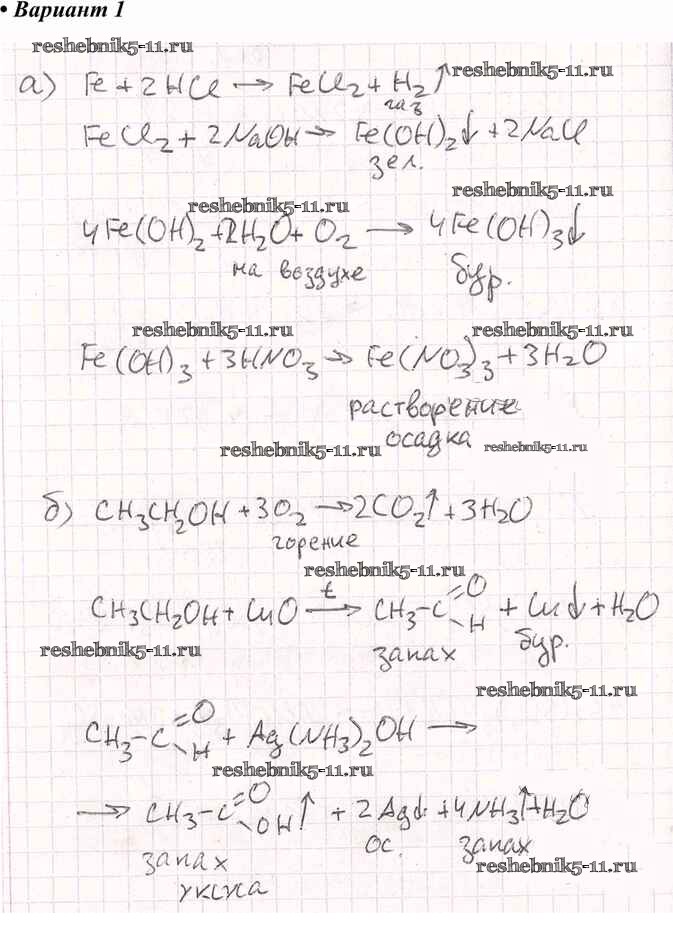 • Вариант 1
reshebnik5-11.ru
а) Fe + 2HCl → FeCl₂ + H₂↑ reshebnik5-11.ru
газ
FeCl₂ + 2NaOH → Fe(OH)₂↓ + 2NaCl
зел.
reshebnik5-11.ru
reshebnik5-11.ru
4Fe(OH)₂ + 2H₂O + O₂ → 4Fe(OH)₃↓
на воздухе бур.
reshebnik5-11.ru reshebnik5-11.ru
Fe(OH)₃ + 3HNO₃ → Fe(NO₃)₃ + 3H₂O
растворение
осадка
reshebnik5-11.ru reshebnik5-11.ru
б) CH₃CH₂OH + 3O₂ → 2CO₂↑ + 3H₂O
горение
reshebnik5-11.ru
CH₃CH₂OH + CuO →(t) CH₃-C(=O)-H + Cu↓ + H₂O
reshebnik5-11.ru запах бур.
reshebnik5-11.ru
CH₃-C(=O)-H + Ag(NH₃)₂OH →
reshebnik5-11.ru
→ CH₃-C(=O)-OH↑ + 2Ag↓ + 4NH₃↑ + H₂O
запах ос. запах
уксуса reshebnik5-11.ru